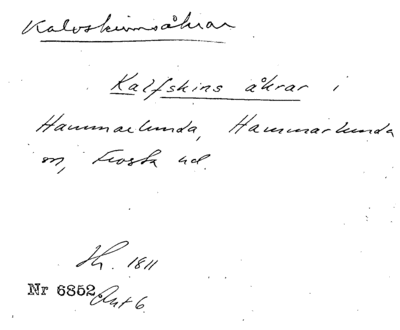 Kalvskinnsåkrar
Kalfskins åkrar i
Hammarlunda, Hammarlunda
sn, Frosta hd.
Sh. 1811
Nr 6852. Akt 6.